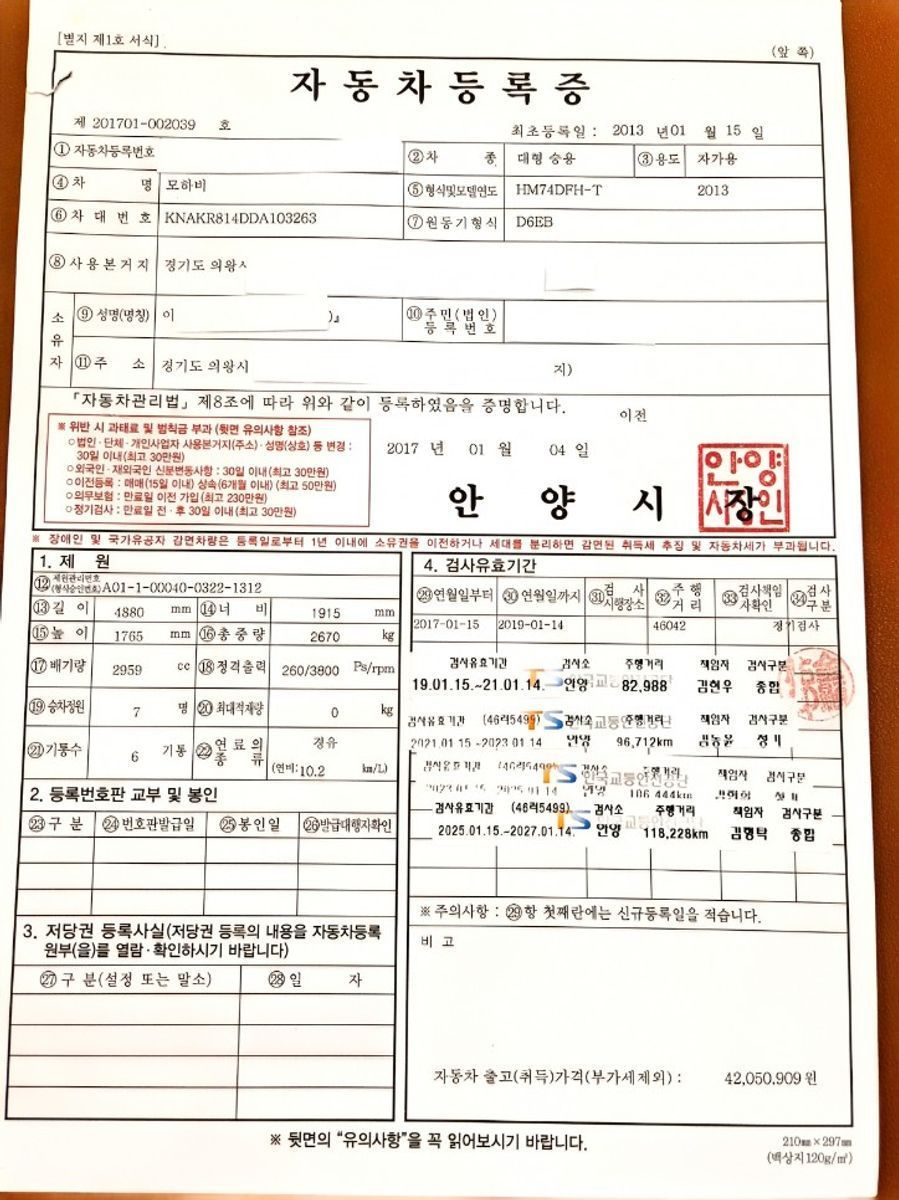 [별지 제1호 서식]
(앞 쪽)
자동차등록증
제 201701-002039 호
최초등록일 : 2013 년 01 월 15 일
①자동차등록번호
②차 종 대형 승용 ③용도 자가용
④차 명 모하비 ⑤형식및모델연도 HM74DFH-T 2013
⑥차대번호 KNAKR814DDA103263 ⑦원동기형식 D6EB
⑧사용본거지 경기도 의왕
소유자
⑨성명(명칭) 이 )』 ⑩주민(법인)등록번호
⑪주 소 경기도 의왕시 지)
「자동차관리법」 제8조에 따라 위와 같이 등록하였음을 증명합니다.
이전
※ 위반 시 과태료 및 범칙금 부과 (뒷면 유의사항 참조)
○법인·단체·개인사업자 사용본거지(주소)·성명(상호) 등 변경 :
30일 이내(최고 30만원)
○외국인·재외국인 신분변동사항 : 30일 이내(최고 30만원)
○이전등록 : 매매(15일 이내) 상속(6개월 이내) (최고 50만원)
○의무보험 : 만료일 이전 가입(최고 230만원)
○정기검사 : 만료일 전·후 30일 이내(최고 30만원)
2017 년 01 월 04 일
안 양 시 장
안양시장인
※ 장애인 및 국가유공자 감면차량은 등록일로부터 1년 이내에 소유권을 이전하거나 세대를 분리하면 감면된 취득세 추징 및 자동차세가 부과됩니다.
1. 제 원
⑫제원관리번호(형식승인번호) A01-1-00040-0322-1312
⑬길 이 4880 mm ⑭너 비 1915 mm
⑮높 이 1765 mm ⑯총중량 2670 kg
⑰배기량 2959 cc ⑱정격출력 260/3800 Ps/rpm
⑲승차정원 7 명 ⑳최대적재량 0 kg
㉑기통수 6 기통 ㉒연료의 종류 경유
(연비:10.2 km/L)
2. 등록번호판 교부 및 봉인
㉓구 분 ㉔번호판발급일 ㉕봉인일 ㉖발급대행자확인
3. 저당권 등록사실(저당권 등록의 내용을 자동차등록
원부(을)를 열람·확인하시기 바랍니다)
㉗구 분(설정 또는 말소) ㉘일 자
4. 검사유효기간
㉙연월일부터 ㉚연월일까지 ㉛검사시행장소 ㉜주행거리 ㉝검사책임자확인 ㉞검사구분
2017-01-15 2019-01-14 46042 정기검사
검사유효기간 검사소 주행거리 책임자 검사구분
19.01.15.~21.01.14. 안양 82,988 김현우 종합
TS 한국교통안전공단
검사유효기간 (46러5499) 검사소 주행거리 책임자 검사구분
2021.01.15 ~2023.01.14 안양 96,712km
TS 한국교통안전공단
검사유효기간 (46러5499) 주행거리 책임자 검사구분
106,444km
TS 한국교통안전공단
검사유효기간 (46러5499) 검사소 주행거리 책임자 검사구분
2025.01.15.~2027.01.14. 안양 118,228km 김형탁 종합
※주의사항 : ㉙항 첫째란에는 신규등록일을 적습니다.
비 고
자동차 출고(취득)가격(부가세제외) : 42,050,909 원
※ 뒷면의 "유의사항"을 꼭 읽어보시기 바랍니다.
210㎜×297㎜
(백상지120g/㎡)